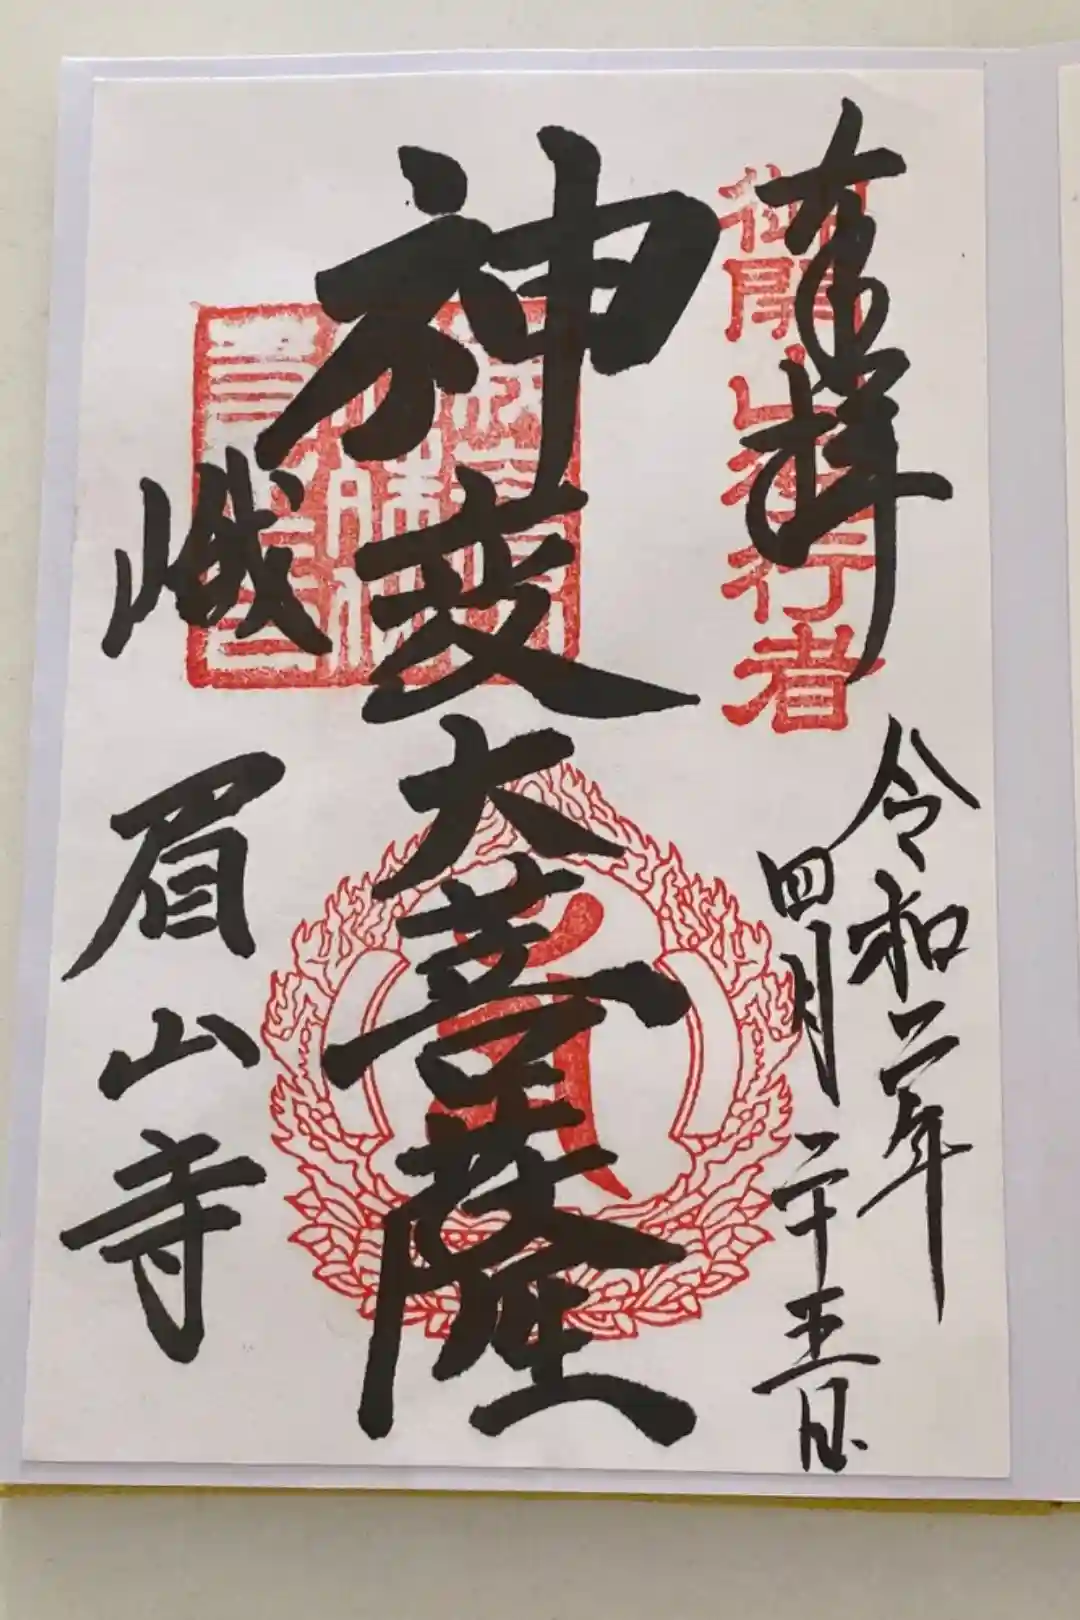 奉拝
御開山役行者
令和二年
四月二十五日
神変大菩薩
峨眉山寺